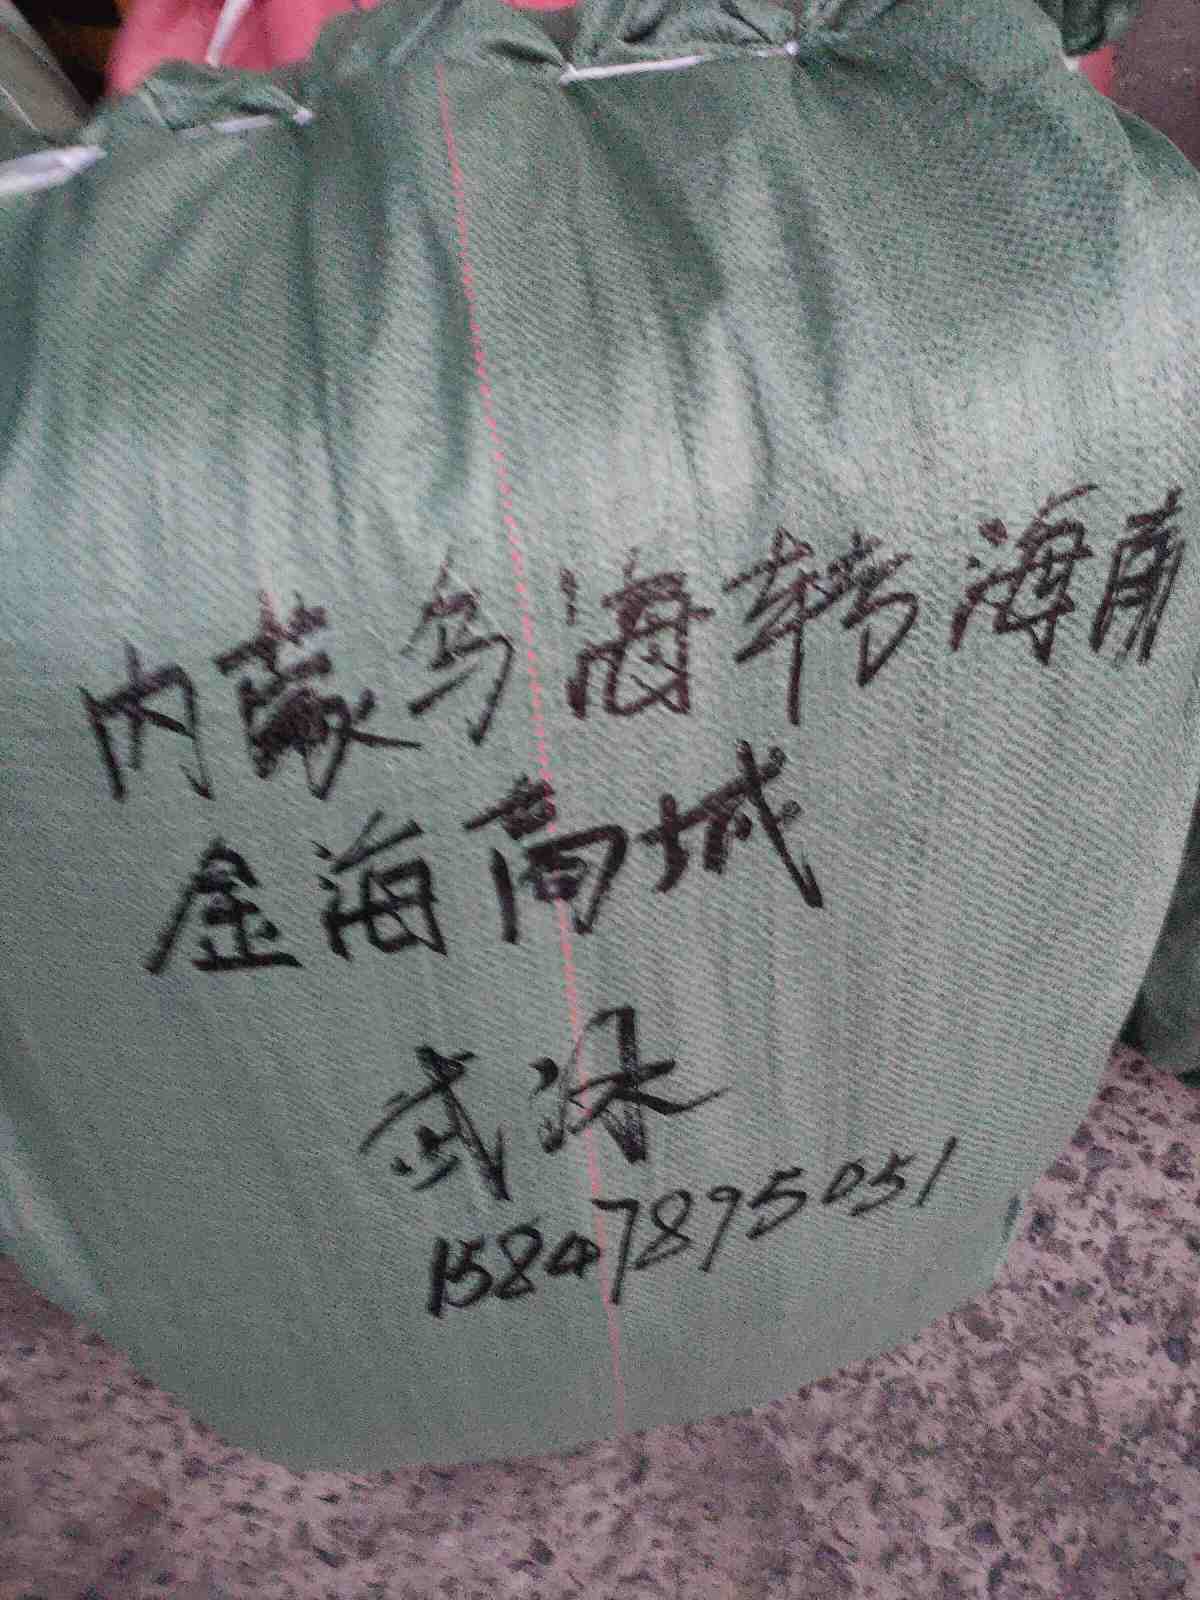 内蒙乌海转海南
金海商城
武沭
15847895051